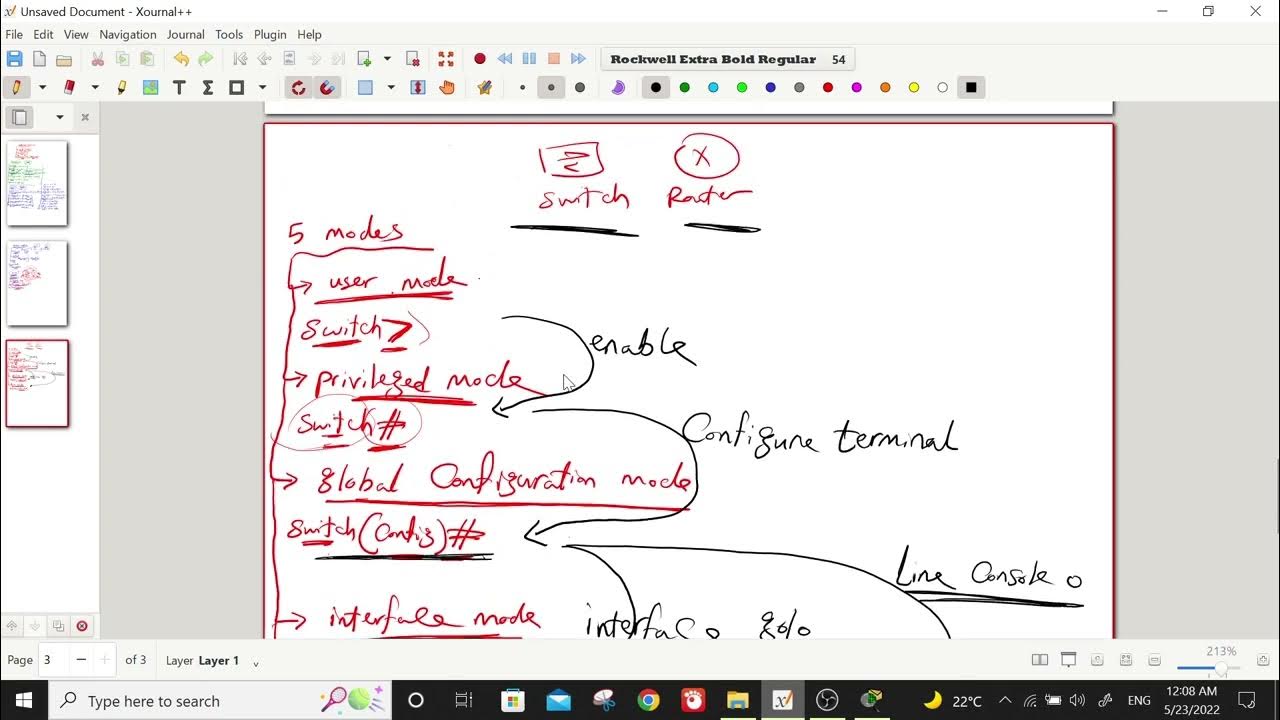 Unsaved Document - Xournal++
File Edit View Navigation Journal Tools Plugin Help
Rockwell Extra Bold Regular 54
X
Switch Router
5 modes
user mode
Switch >
enable
privileged mode
Switch #
Configure terminal
global Configuration mode
Switch (Config) #
Line Console 0
interface mode
interface g0/0
Page 3 of 3 Layer Layer 1 213%
Type here to search
22°C ENG 12:08 AM
5/23/2022